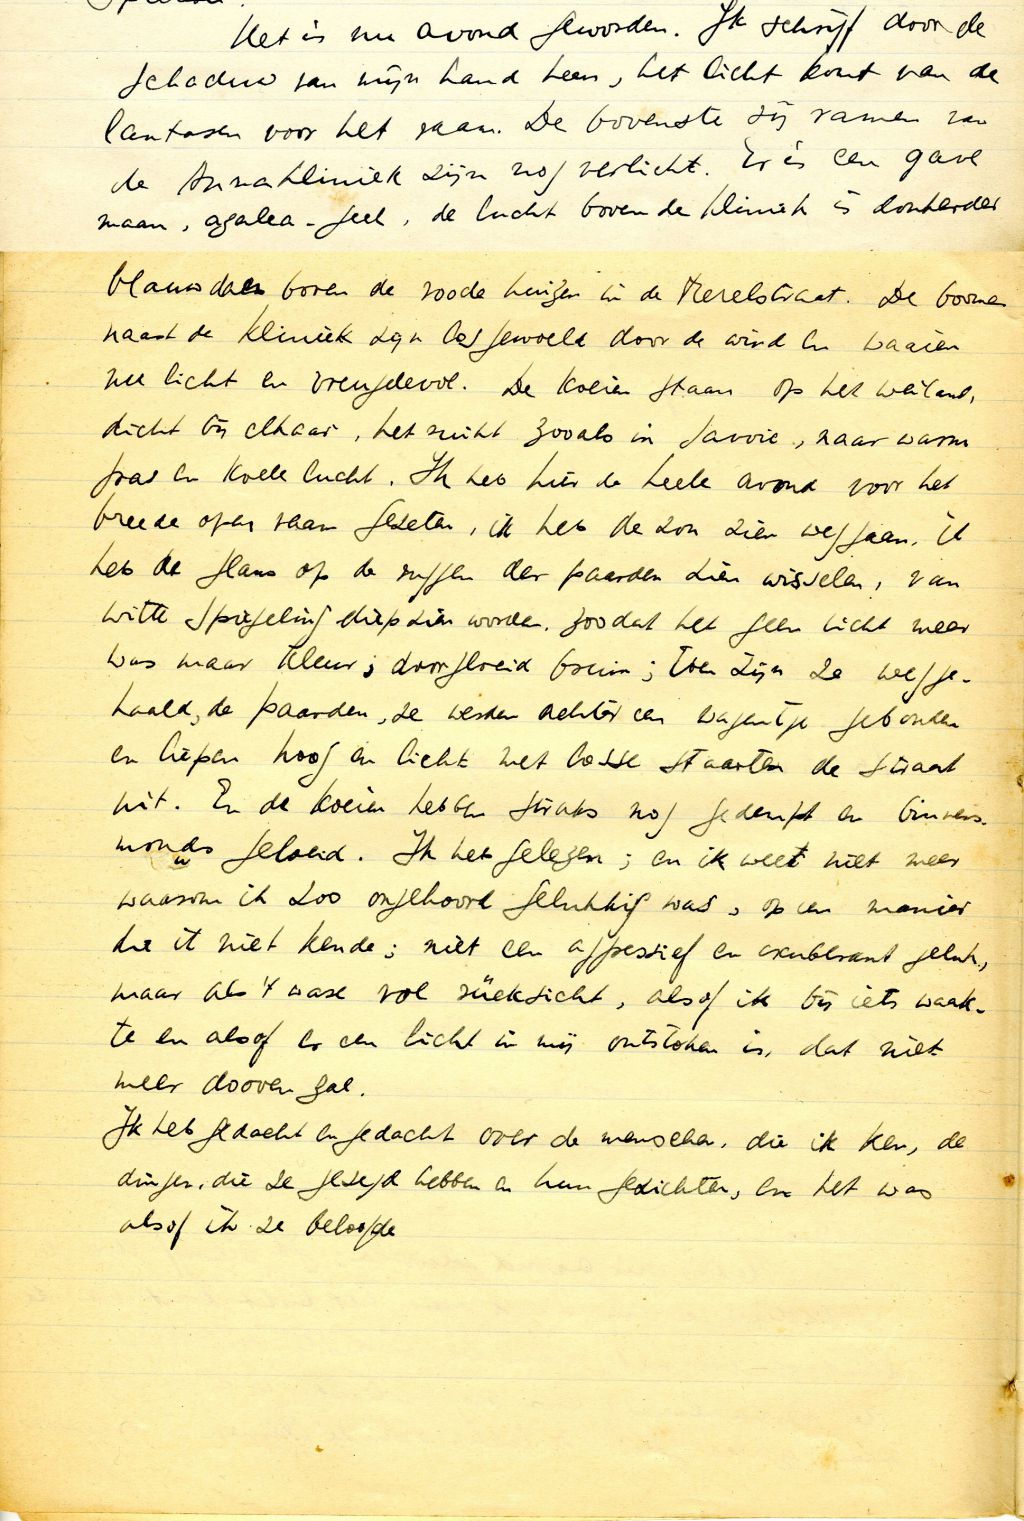 Het is nu avond geworden. Ik schrijf door de
schaduw van mijn hand heen, het licht komt van de
lantaren voor het raam. De bovenste zij ramen van
de Annakliniek zijn nog verlicht. Er is een gave
maan, azalea-geel, de lucht boven de kliniek is donkerder
blauw dan boven de roode huizen in de Merelstraat. De boomen
naast de kliniek zijn losgewoeld door de wind en waaien
nu licht en vreugdevol. De koeien staan op het weiland,
dicht bij elkaar, het ruikt zooals in Savoie, naar warm
gras en koele lucht. Ik heb hier de heele avond voor het
breede open raam gezeten, ik heb de zon zien weggaan, ik
heb de glans op de ruggen der paarden zien wisselen, van
witte spiegeling diep zien worden, zoodat het geen licht meer
was maar kleur; doorgloeid bruin; toen zijn ze wegge-
haald, de paarden, ze werden achter een wagentje gebonden
en liepen hoog en licht met losse staarten de straat
uit. En de koeien hebben straks nog gedempt en binnens-
monds geloeid. Ik heb gelezen; en ik weet niet meer
waarom ik zoo ongehoord gelukkig was, op een manier
die ik niet kende; niet een agressief en exuberant geluk,
maar als 't ware vol rücksicht, alsof ik bij iets waak-
te en alsof er een licht in mij ontstoken is, dat niet
meer dooven zal.
Ik heb gedacht en gedacht over de menschen, die ik ken, de
dingen, die ze gezegd hebben en hun gedichten, en het was
alsof ik ze beloofde